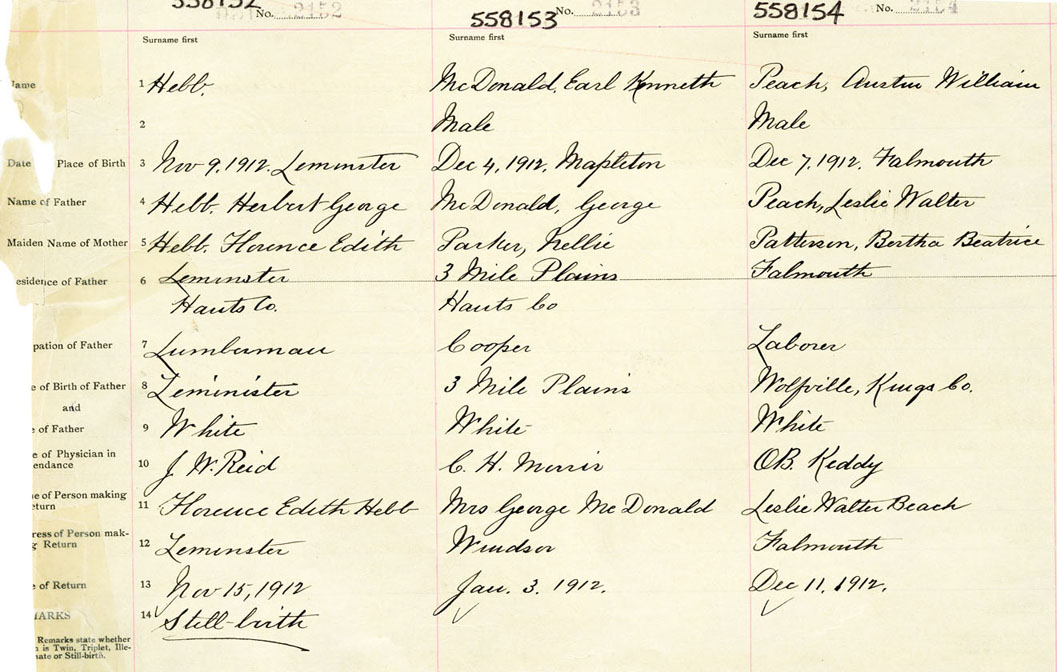 558152 No. 2152
558153 No. 2153
558154 No. 2154
Surname first Surname first Surname first
Name 1 Hebb. McDonald, Earl Kenneth Peach, Austin William
2 Male Male
Date Place of Birth 3 Nov 9, 1912. Leminster Dec 4, 1912. Mapleton Dec 7, 1912. Falmouth
Name of Father 4 Hebb. Herbert George McDonald, George Peach, Leslie Walter
Maiden Name of Mother 5 Hebb. Florence Edith Parker, Nellie Patterson, Bertha Beatrice
esidence of Father 6 Leminster 3 Mile Plains Falmouth
Hants Co. Hants Co
pation of Father 7 Lumberman Cooper Laborer
e of Birth of Father 8 Leminister 3 Mile Plains Wolfville, Kings Co.
and
e of Father 9 White White White
e of Physician in
endance 10 J. W. Reid C. H. Morris OB. Keddy
e of Person making
eturn 11 Florence Edith Hebb Mrs George McDonald Leslie Walter Beach
ress of Person mak-
g Return 12 Leminster Windsor Falmouth
e of Return 13 Nov 15, 1912 Jan. 3. 1912. Dec 11. 1912.
ARKS 14 Still-birth
Remarks state whether
is Twin, Triplet, Ille-
nate or Still-birth.